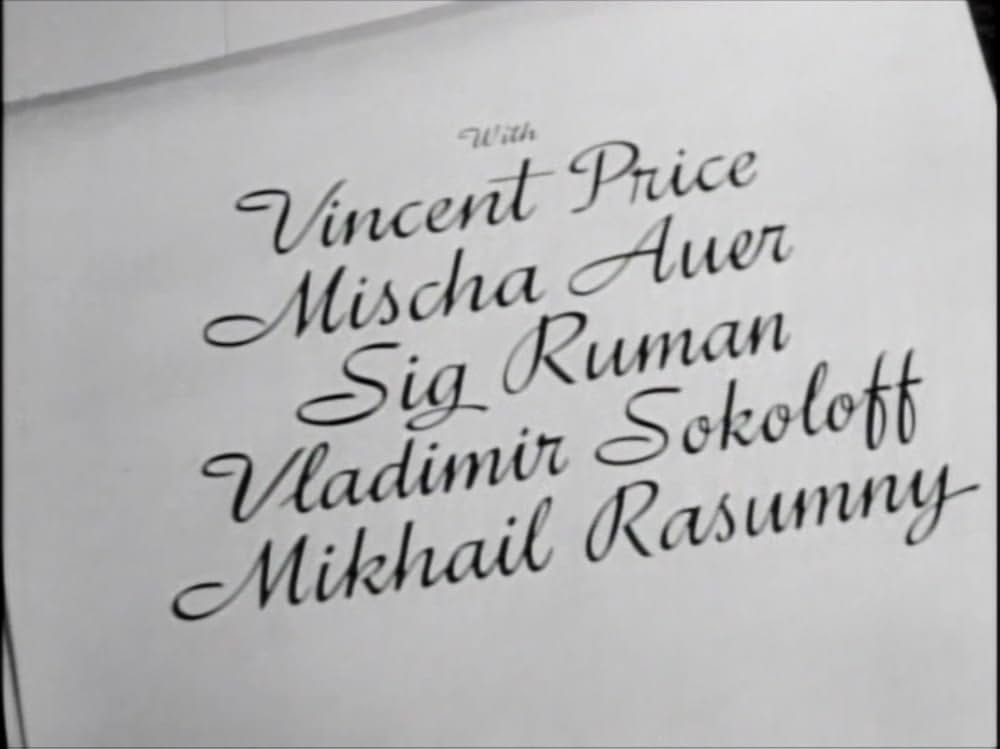 With
Vincent Price
Mischa Auer
Sig Ruman
Vladimir Sokoloff
Mikhail Rasumny